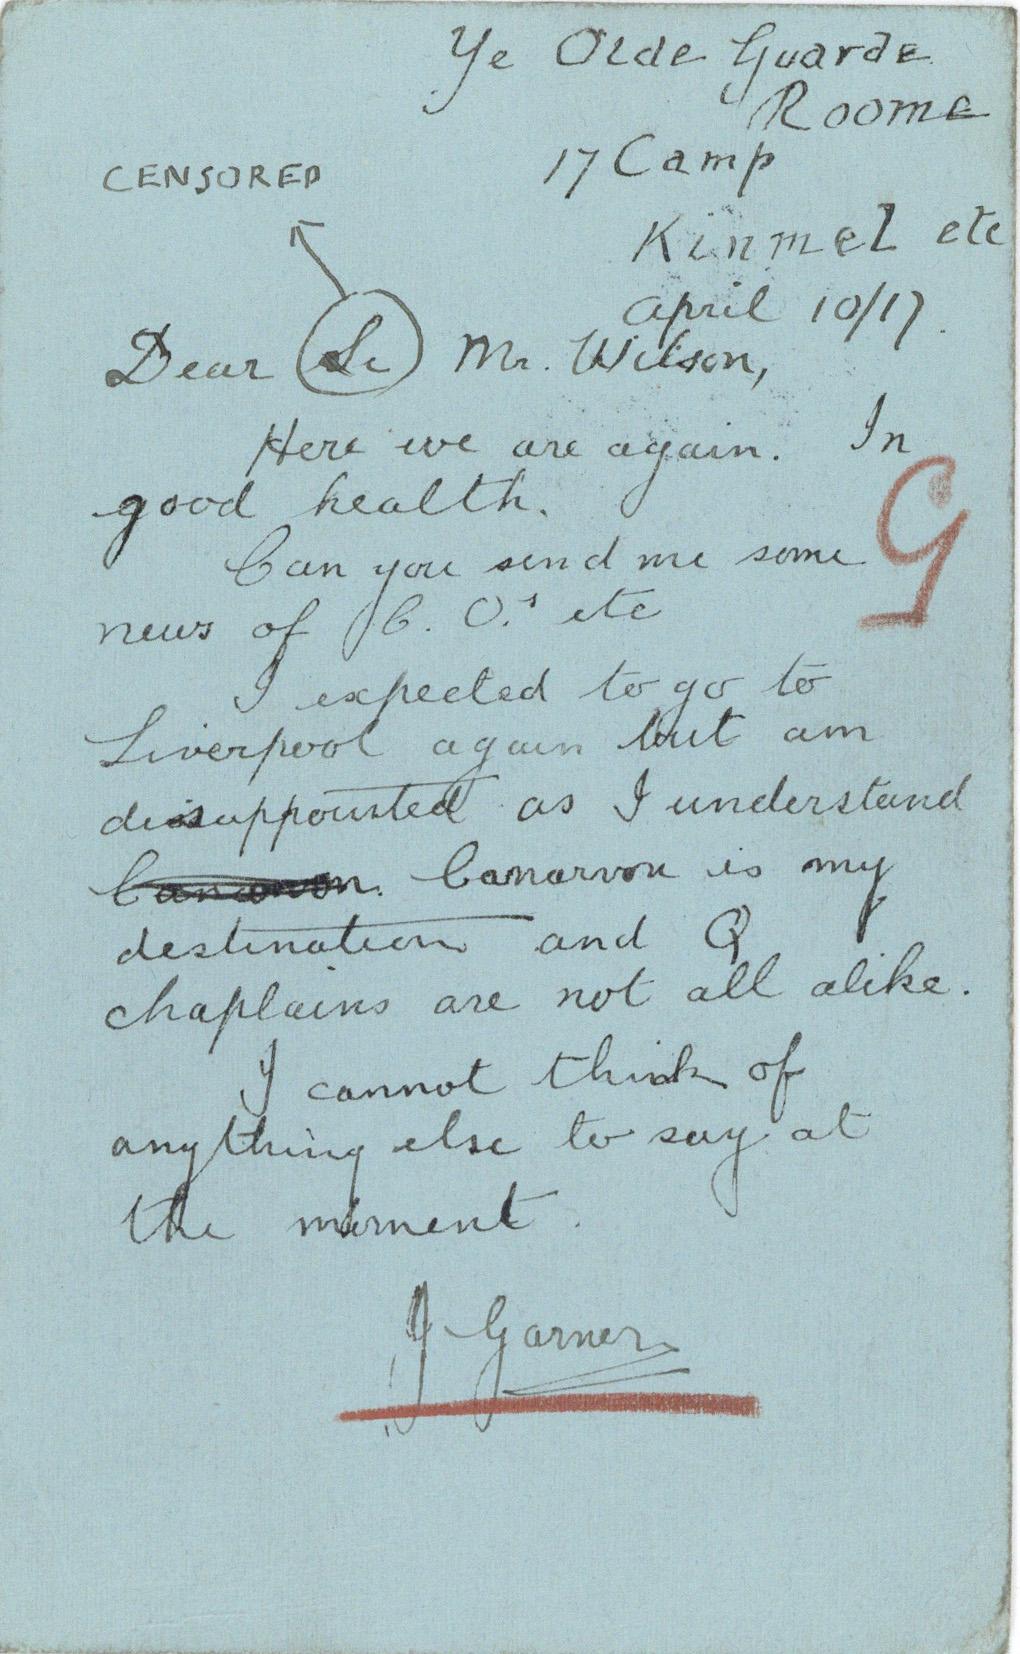 Ye Olde Guarde
Roome
17 Camp
CENSORED
Kinmel etc
April 10/17.
Dear Si Mr. Wilson,
Here we are again. In
good health.
G
Can you send me some
news of C. O.s etc
I expected to go to
Liverpool again but am
dissappointed as I understand
Canarvon. Canarvon is my
destination and Q
chaplains are not all alike.
I cannot think of
anything else to say at
the moment.
J Garner